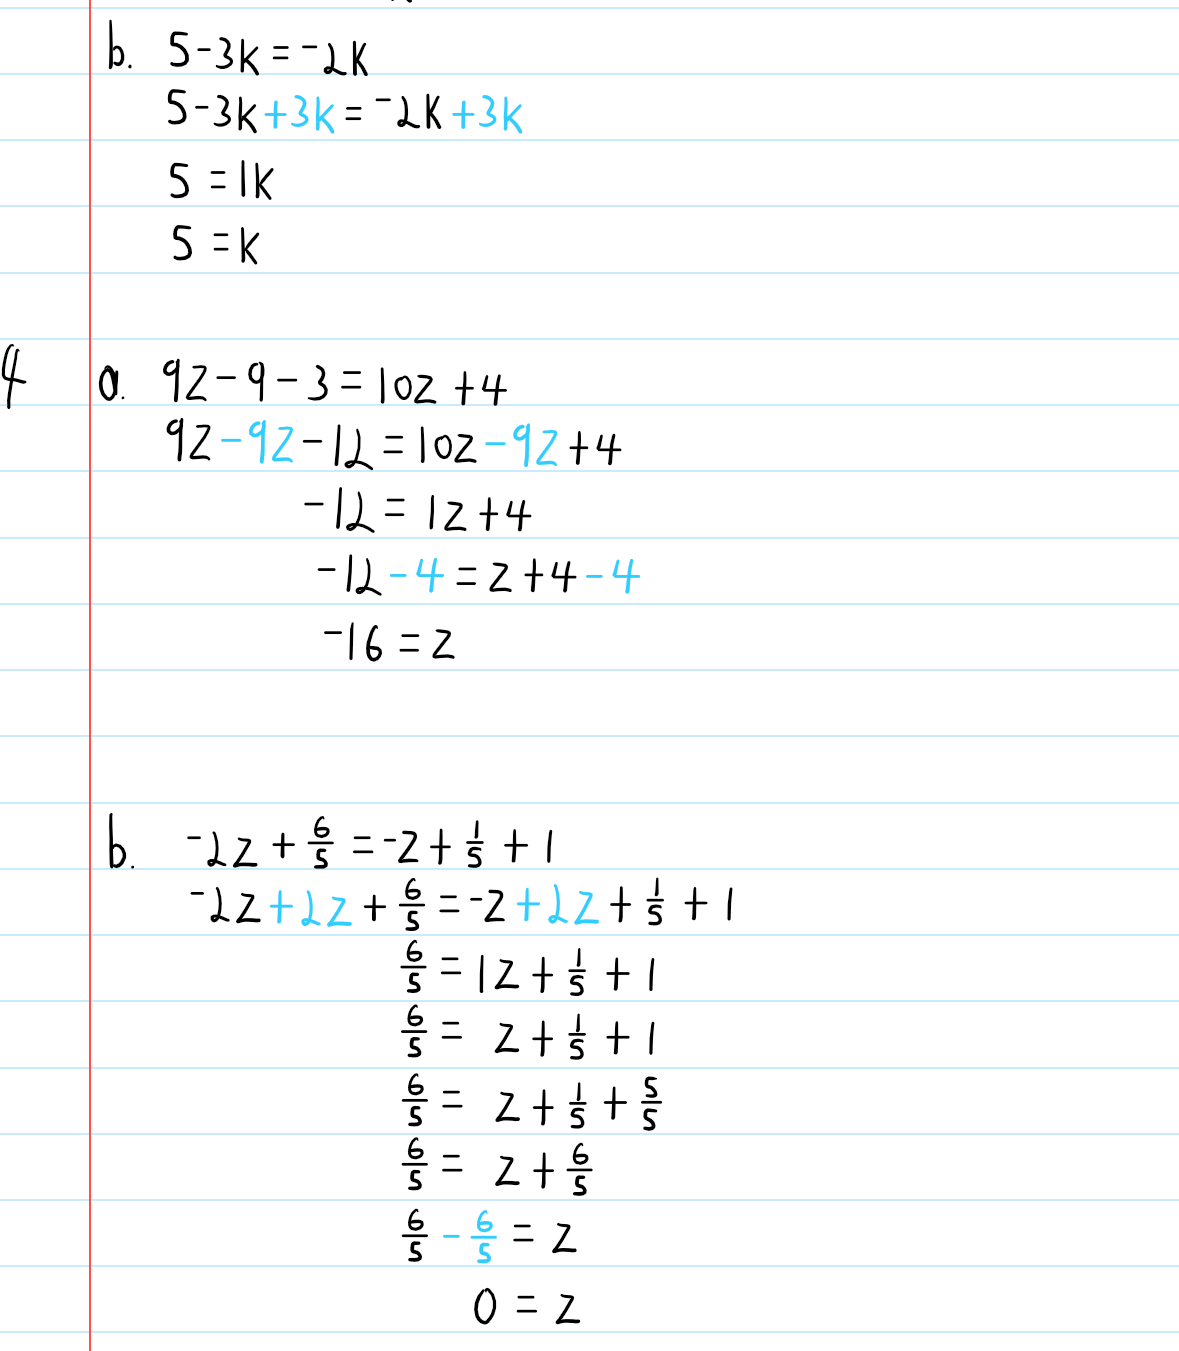 b. 5-3k = -2k
5-3k+3k = -2k+3k
5 = 1k
5 = k
4 a. 9z-9-3 = 10z +4
9z-9z-12 = 10z-9z+4
-12 = 1z+4
-12-4 = z+4-4
-16 = z
b. -2z + 6/5 = -z + 1/5 + 1
-2z+2z + 6/5 = -z+2z + 1/5 + 1
6/5 = 1z + 1/5 + 1
6/5 = z + 1/5 + 1
6/5 = z + 1/5 + 5/5
6/5 = z + 6/5
6/5 - 6/5 = z
0 = z